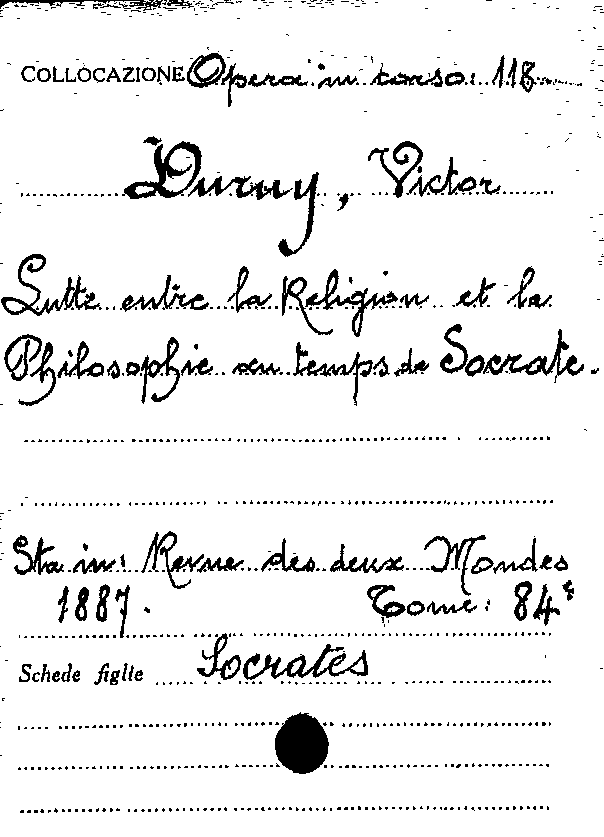 COLLOCAZIONE Opera in corso: 118
Duruy, Victor
Lutte entre la Religion et la
Philosophie au temps de Socrate.
Sta in: Revue des deux Mondes
1887. Tome: 84e
Schede figlie Socrates